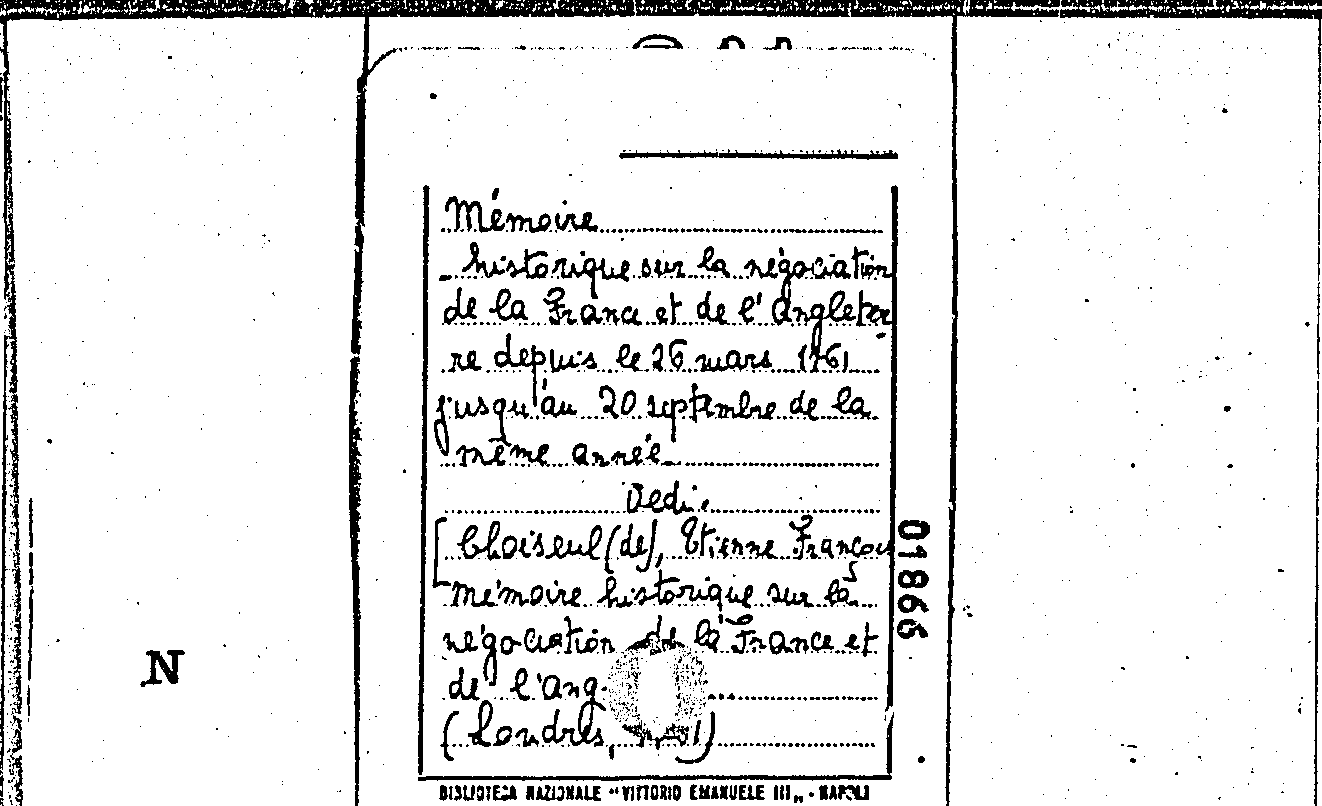 Mémoire
- historique sur la négociation
de la France et de l'Angleter
re depuis le 26 mars 1761
jusqu'au 20 septembre de la
même année
Vedi.
[Choiseul (de), Etienne François
mémoire historique sur la
négociation de la France et
de l'Ang
(Londres,
01866
N
BIBLIOTECA NAZIONALE "VITTORIO EMANUELE III" - NAPOLI